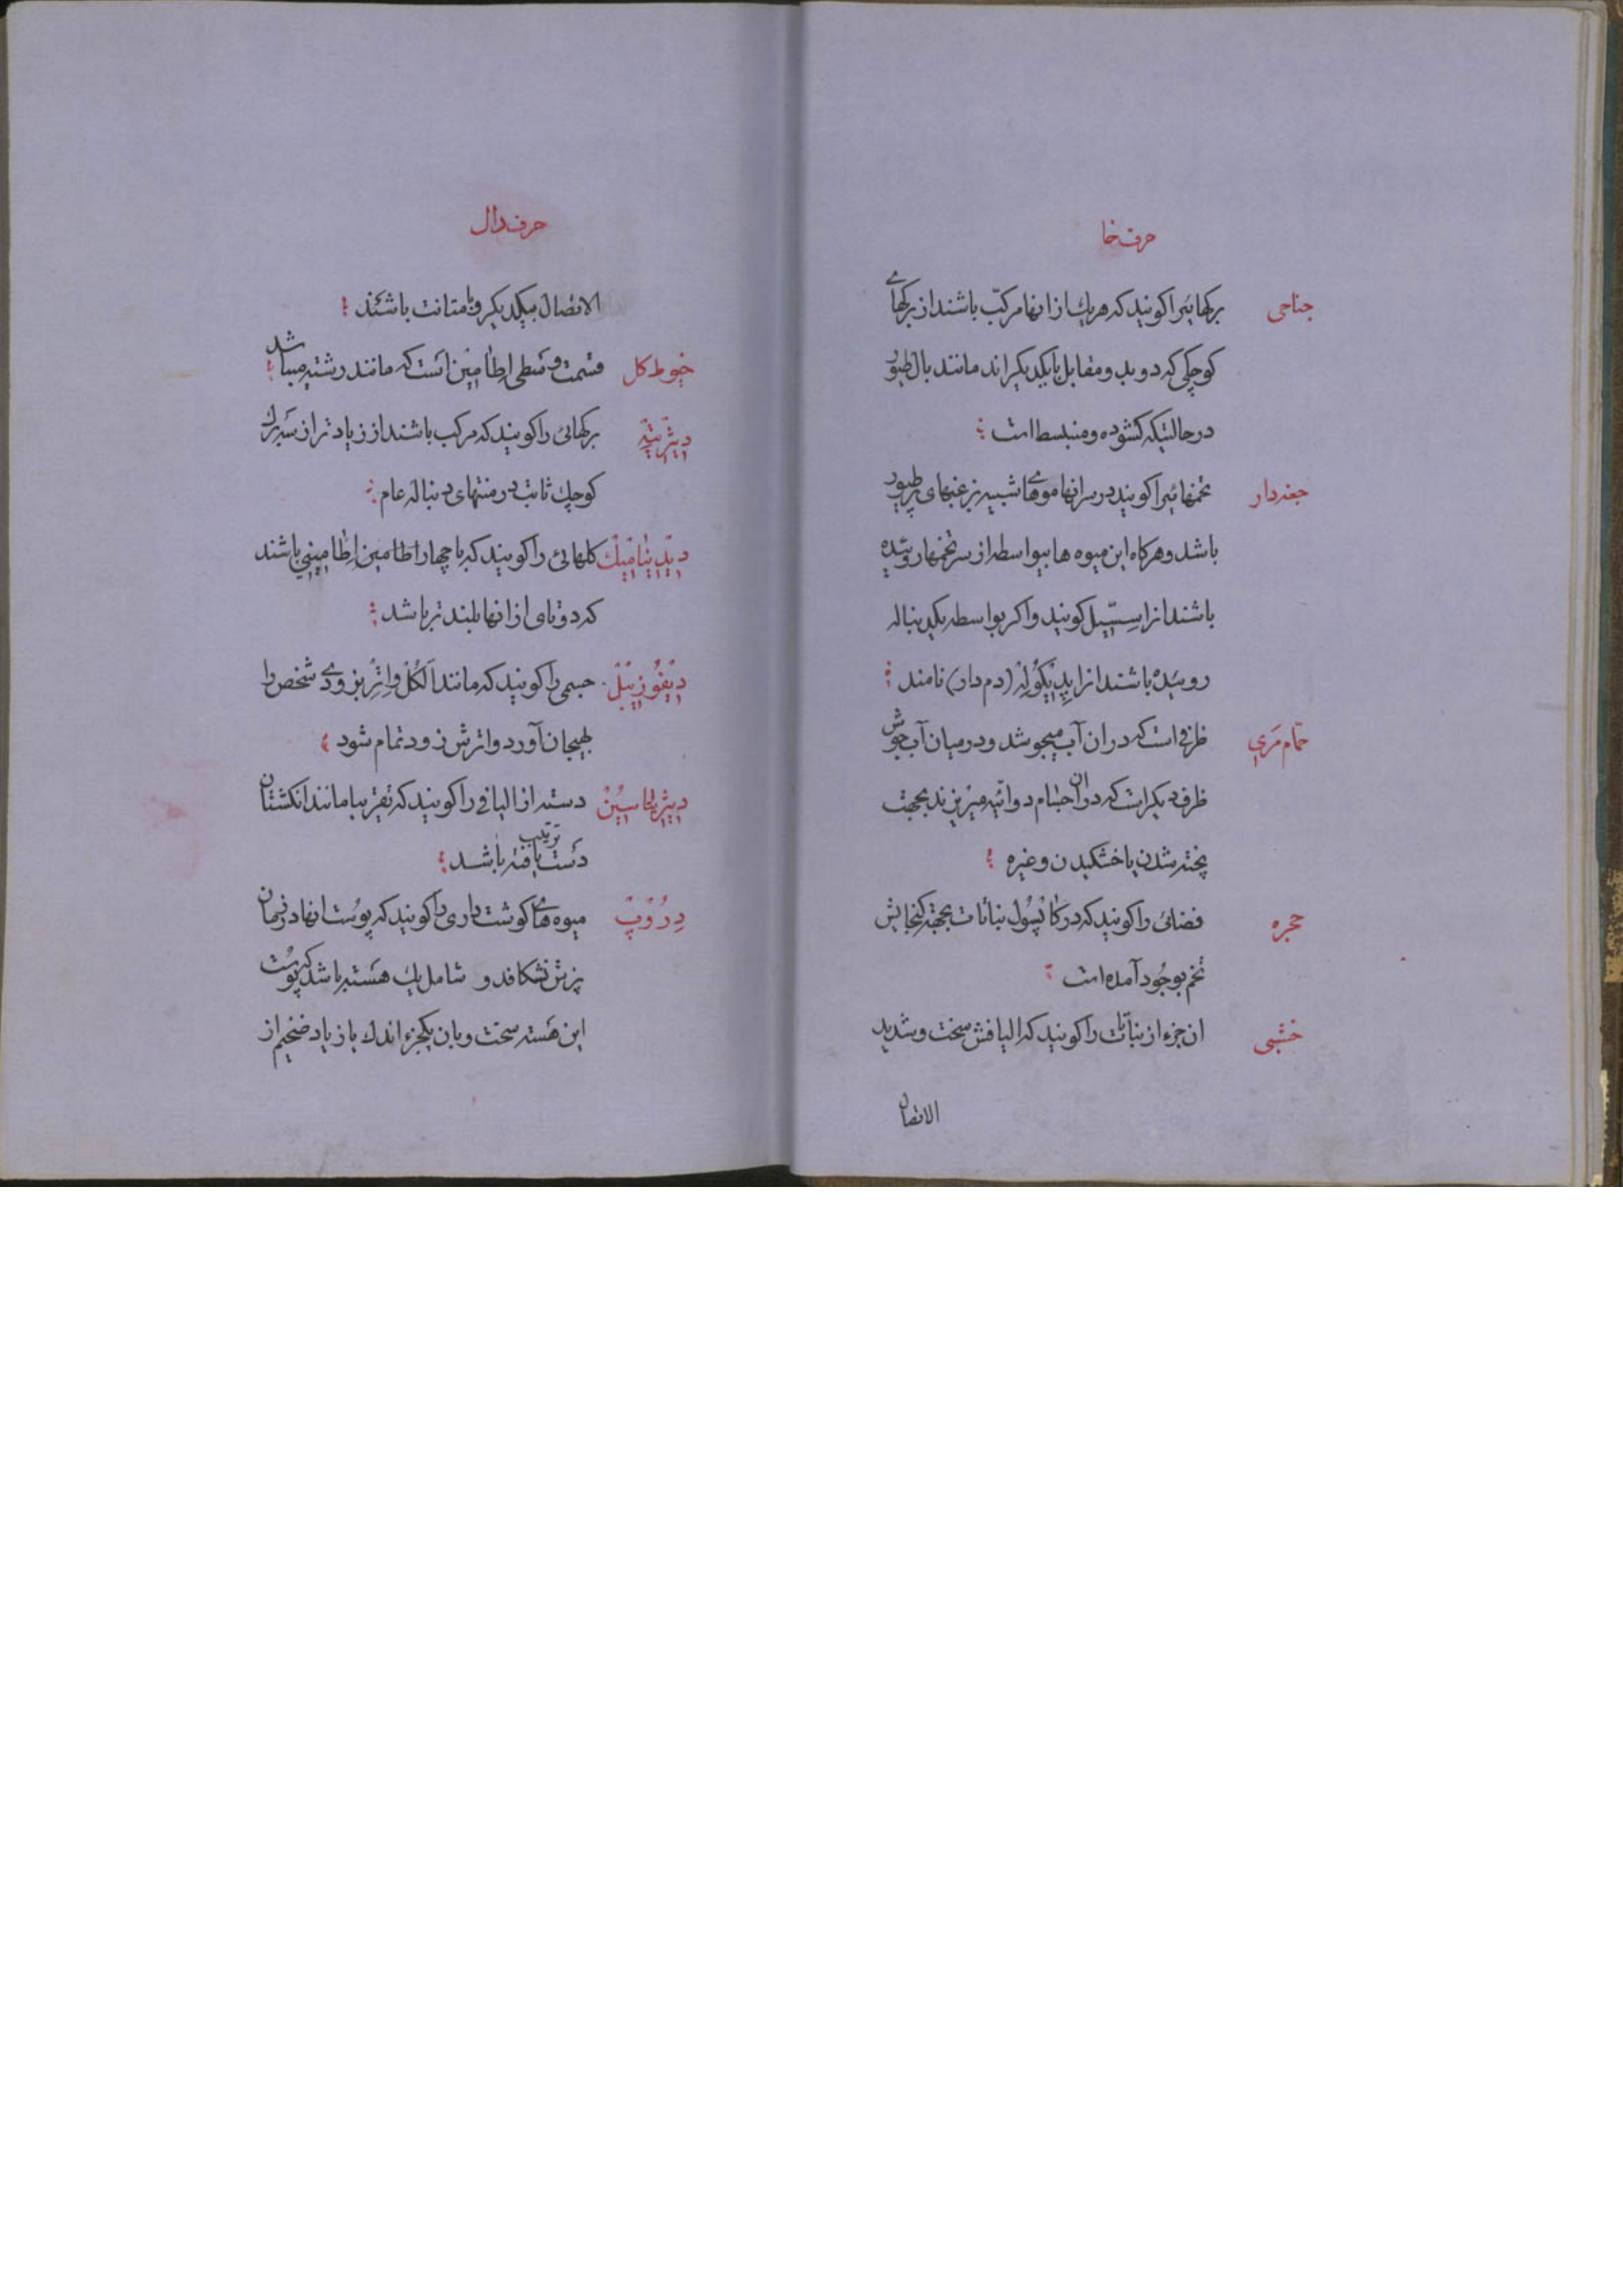 حرف خا
جناحی برکهائیرا کویند که هریك از انها مرکّب باشند از برکهای
کوچکی که دو بدو مقابل با یکدیکراند مانند بال طیور
در حالتیکه کشوده و منبسط است
جغه‌دار تخمهائیرا کویند در سر انها موهای شبیه بزغبهای پر طیور
باشد و هرکاه این میوه ها بیواسطه از سر تخمها روئیده
باشند انرا سِسّیل کویند و اکر بواسطه یکدنباله
روئیده باشند انرا پدیکوله (دم دار) نامند
حمّام مَری ظرفی است که در ان آب میجوشد و در میان آب جوش
ظرف دیکر است که در ان اجسام دوائیه میریزند بجهت
پخته شدن یا خشکیدن و غیره
حجره فضائی را کویند که در کاپسول نباتات بجهة کنجایش
تخم بوجُود آمده است
خشبی ان جزء از نباتات را کویند که الیافش سخت و شدید
الاتصال
حرف دال
الاتصال بیکدیکر و با متانت باشند
خیوط کل قسمت وسطی اِطامین است که مانند رشته میباشد
دیژیته برکهائی را کویند که مرکب باشند از زیادتر از سه برك
کوچك ثابت در منتهای دنباله عام
دیدینامیك کلهائی را کویند که با چهار اطامین اِطامینی باشند
که دوتای از انها بلندتر باشد
دیفوزیبل جسمی را کویند که مانند اَلکُل و اِتِر بزودی شخص را
بهیجان آورد و اثرش زود تمام شود
دیژیتاسیین دسته از الیافی را کویند که تقریبا مانند انکشتان
دست ترتیب یافته باشد
دروپ میوه های کوشت داری را کویند که پوست انها در زمان
پزش نشکافد و شامل یك هسته باشد که پوست
این هسته سخت و بان یکجزء اندك یا زیاد ضخیم از